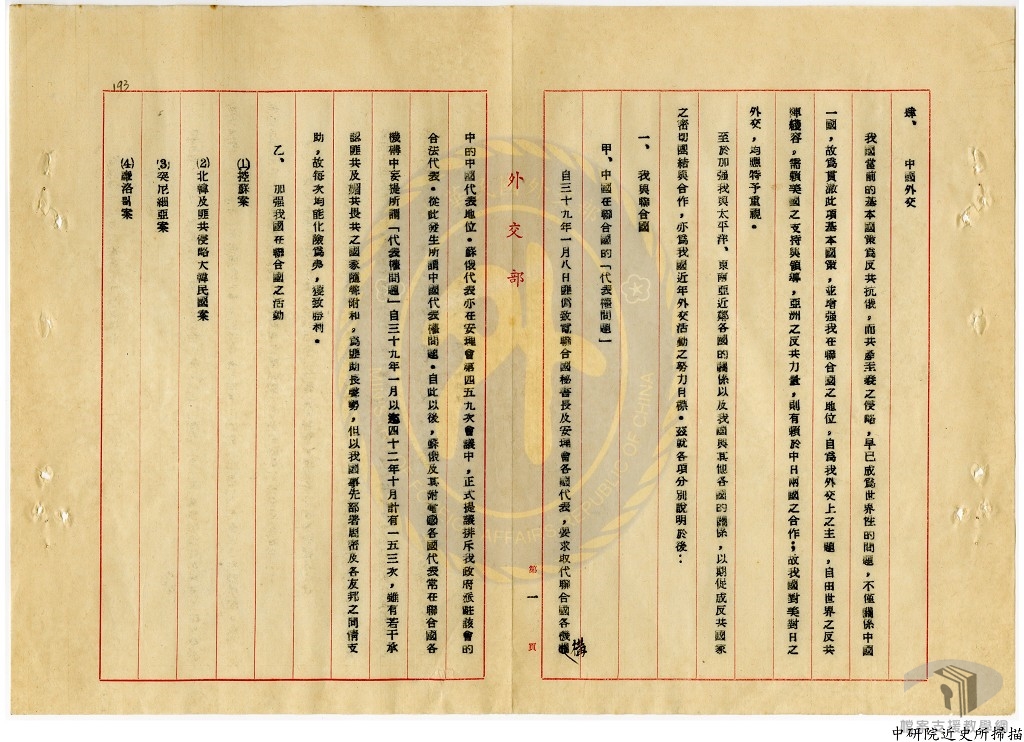 肆、中國外交
我國當前的基本國策為反共抗俄，而共產主義之侵略，早已成為世界性的問題，不僅關係中國
一國，故為貫澈此項基本國策，並增强我在聯合國之地位，自為我外交上之主題，自由世界之反共
陣綫容，需賴美國之支持與領導，亞洲之反共力量，則有賴於中日兩國之合作；故我國對美對日之
外交，均應特予重視。
至於加强我與太平洋、東南亞近鄰各國的關係以及我國與其他各國的關係，以期促成反共國家
之密切團結與合作，亦為我國近年外交活動之努力目標。茲就各項分別說明於後：
一、我與聯合國
甲、中國在聯合國的「代表權問題」
自三十九年一月八日匪偽致電聯合國秘書長及安理會各國代表，要求取代聯合國各機構
第一頁
外交部
中的中國代表地位。蘇俄代表亦在安理會第四五九次會議中，正式提議排斥我政府派駐該會的
合法代表。從此發生所謂中國代表權問題。自此以後，蘇俄及其附庸國各國代表常在聯合國各
機構中妄提所謂「代表權問題」自三十九年一月以迄四十二年十月計有一五三次，雖有若干承
認匪共及親共畏共之國家隨聲附和，為匪助長聲勢，但以我國事先部署周密及各友邦之同情支
助，故每次均能化險為夷，獲致勝利。
乙、加强我國在聯合國之活動
(1)控蘇案
(2)北韓及匪共侵略大韓民國案
(3)突尼細亞案
(4)摩洛哥案
193
MINISTRY OF FOREIGN AFFAIRS REPUBLIC OF CHINA
檔案支援教學網
中研院近史所掃描